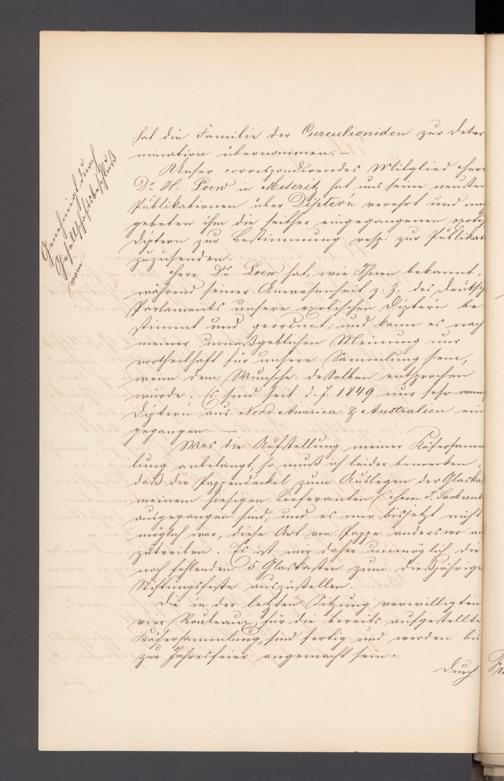 hat die Familie der Curculioniden zur Deter
mination übernommen. —
Unser correspondirendes Mitglied Herr
Dr. H. Loew in Meseritz hat uns seine neusten
Publikationen über Diptern verehrt und
gebeten ihm die seither eingegangenen exot.
Diptern zur Bestimmung resp: zur Publikat
zuzusenden.
Herr Dr. Loew hat, wie Ihnen bekannt,
während seiner Anwesenheit z. Z. des deutsch
Parlaments unsere exotischen Diptern be
stimmt und geordnet, und kann es nach
meiner unmaßgeblichen Meinung nur
vortheilhaft für unsere Sammlung sein,
wenn dem Wunsche desselben entsprochen
würde. Es sind seit d. J. 1849 nur sehr wenig
Diptern aus Nord-America & Australien ein
gegangen. —
Was die Aufstellung meiner Käfersamm
lung anbelangt, so muß ich leider bemerken,
daß die Pappendeckel zum Auslegen der Glaskä
meinem hiesigen Lieferanten
ausgegangen sind, und es mir bis jetzt nicht
möglich war, diese Art von Pappe anderswo an
zutreiben. Es ist mir daher unmöglich die
noch fehlenden 5 Glaskasten zum diesjährige
Stiftungsfeste aufzustellen.
Die in der letzten Sitzung verwilligten
vier Rouleaux, für die bereits aufgestellte
Käfersammlung, sind fertig und werden bis
zur Jahresfeier angemacht sein.
Durch
Genehmigt durch
Gesellschaftsbeschluß